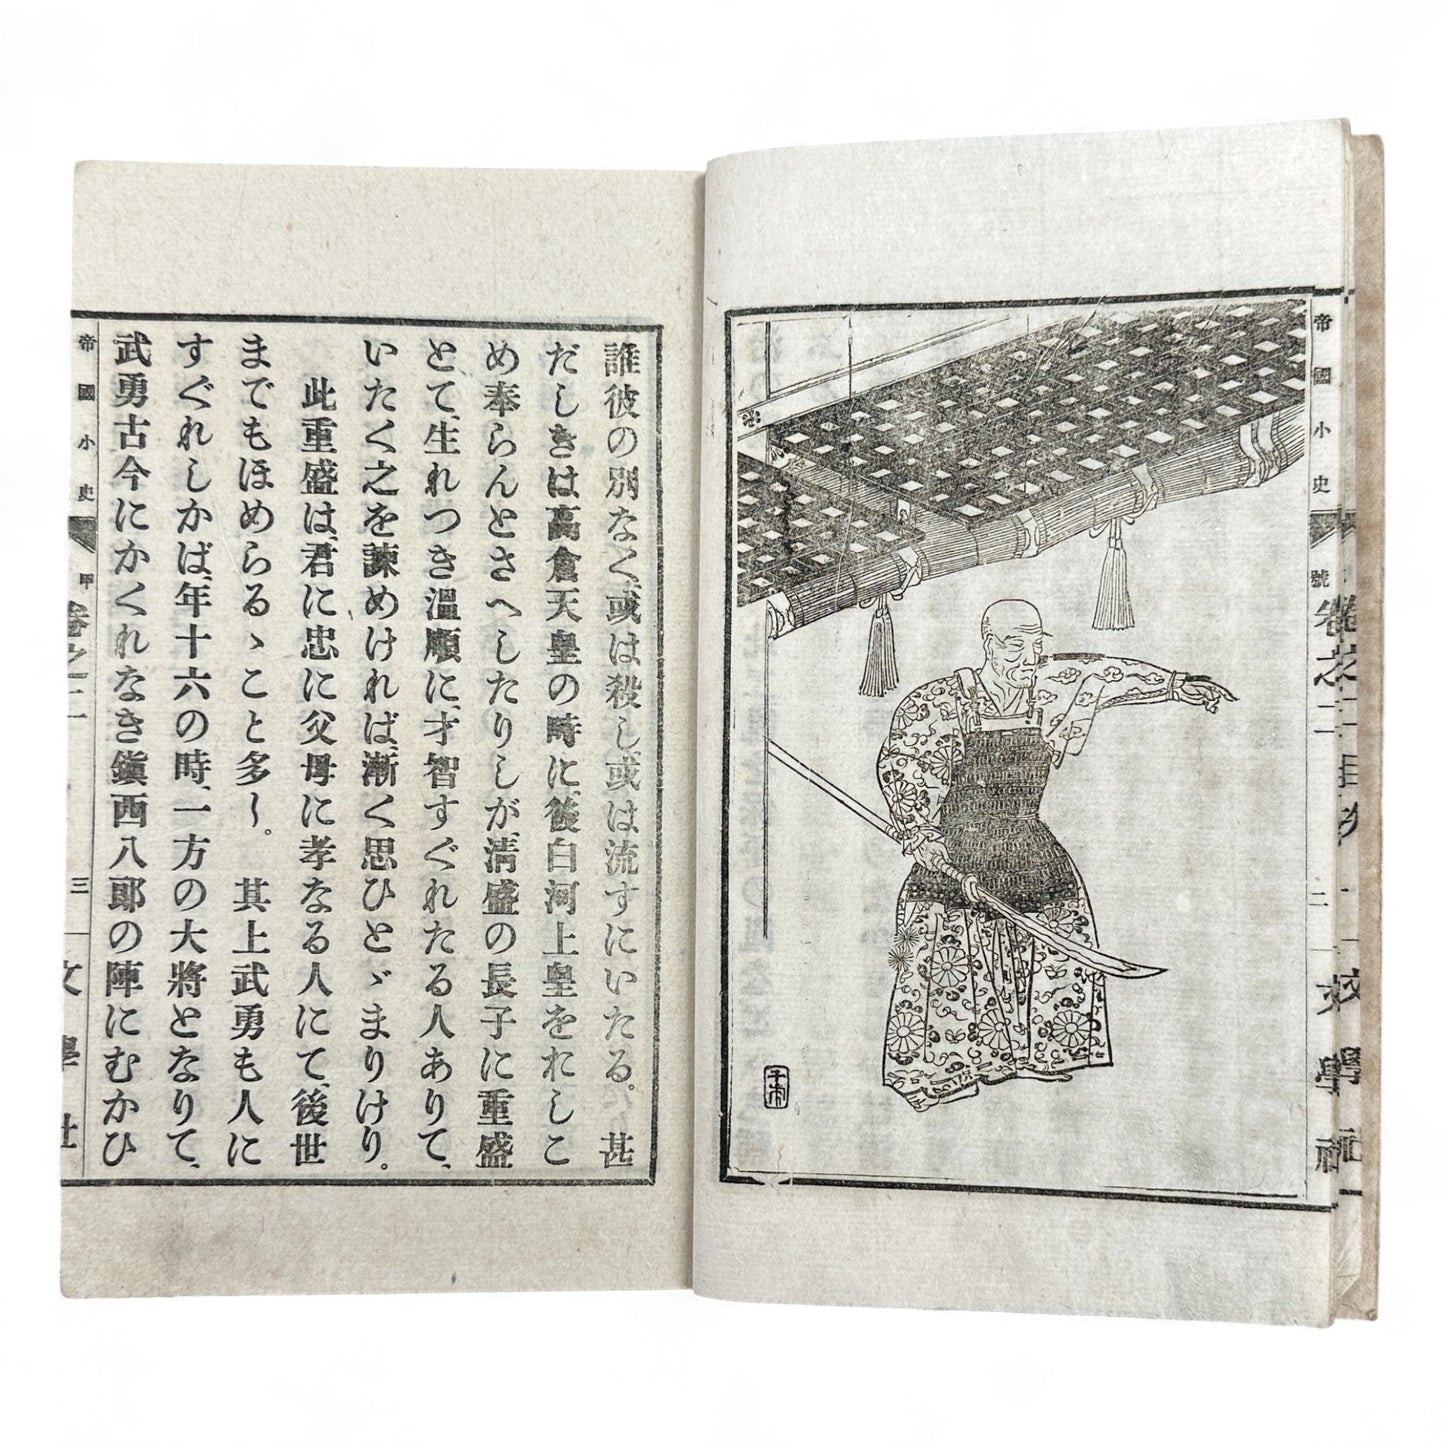 卷之二目次 一 文學社
帝國小史 號 卷之二 二 文學社
誰彼の別なく、或は殺し、或は流すにいたる。甚
だしきは高倉天皇の時に、後白河上皇をおしこ
め奉らんとさへしたりしが、清盛の長子に重盛
とて、生れつき溫順に、才智すぐれたる人ありて、
いたく之を諫めければ、漸く思ひとゞまりけり。
此重盛は、君に忠に父母に孝なる人にて、後世
までもほめらるゝこと多し。其上武勇も人に
すぐれしかば、年十六の時、一方の大將となりて、
武勇古今にかくれなき鎭西八郞の陣にむかひ
帝國小史 甲 卷之二 三 文學社